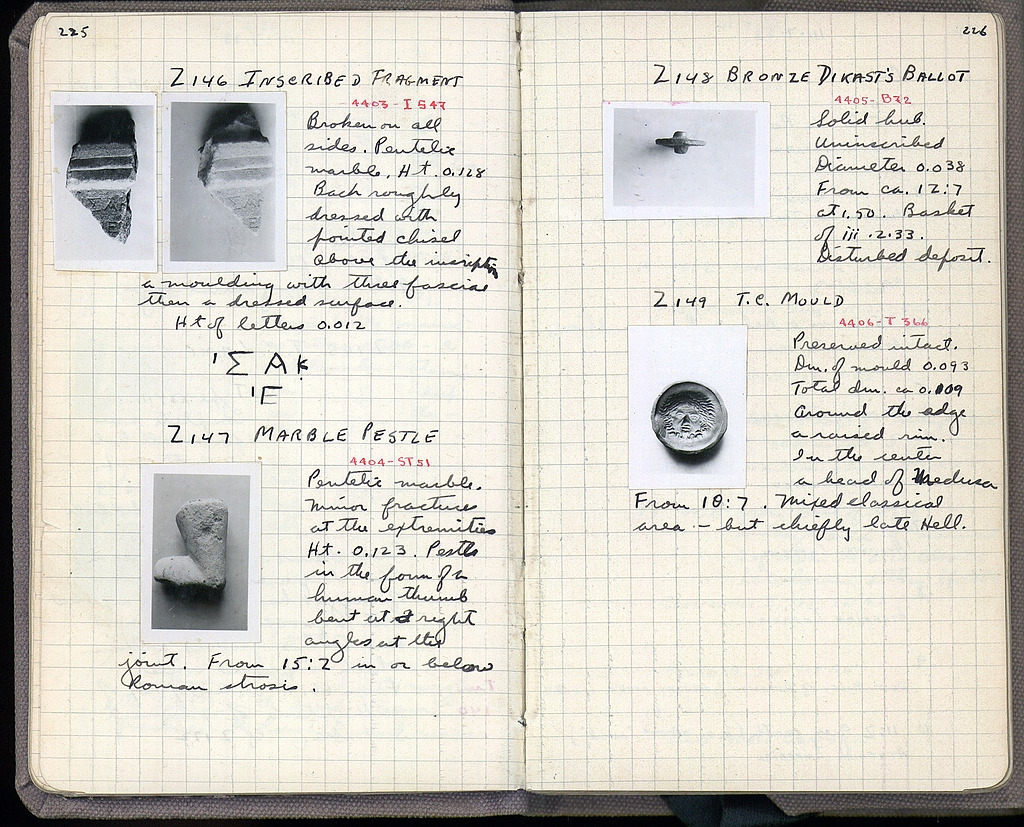 225
Z 146 INSCRIBED FRAGMENT
4403 - I 547
Broken on all
sides. Pentelic
marble. Ht. 0.128
Back roughly
dressed with
pointed chisel
above the inscription
a moulding with three fasciae
then a dressed surface.
Ht of letters 0.012
'ΣΑΚ
'Ε
Z 147 MARBLE PESTLE
4404 - ST 51
Pentelic marble.
Minor fractures
at the extremities
Ht. 0.123. Pestle
in the form of a
human thumb
bent at right
angles at the
joint. From 15:Z in or below
Roman strosis.
226
Z 148 BRONZE DIKAST'S BALLOT
4405 - B 72
Solid hub.
Uninscribed
Diameter 0.038
From ca. 12:7
at 1.50. Basket
of iii.2.33.
Disturbed deposit.
Z 149 T.C. MOULD
4406 - T 366
Preserved intact.
Dm. of mould 0.093
Total dm. ca 0.109
Around the edge
a raised rim.
In the center
a head of Medusa
From 18:7. Mixed classical
area - but chiefly late Hell.